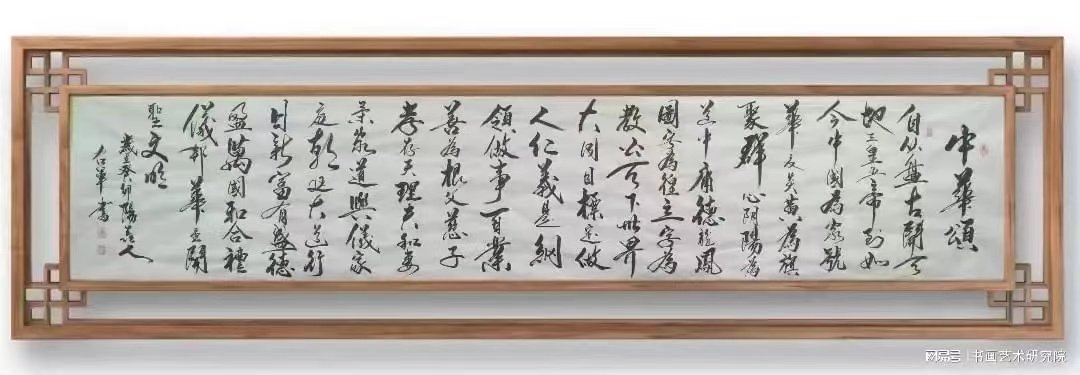 中華頌
自从盤古開天
地三皇五帝到如
今中國為家號
華夏炎黄為旗
聚群心阴陽為
道中庸德龍鳳
圖字為徑立字為
教公天下世界
大同目標定做
人仁義是綱
領做事百業
善為根父慈子
孝存天理夫和妻
柔家道興儀家
庭朝廷大道行
日新富有盛德
盈萬國和合禮
儀邦華夏開
聖文明
歲在癸卯陽人
書
网易号 | 书画艺术研究院